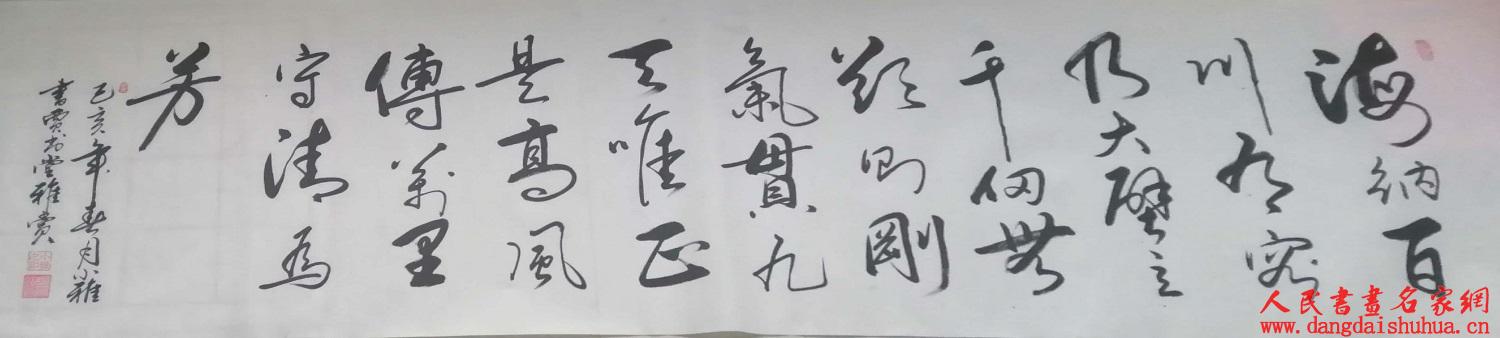 海纳百
川有容
乃大壁立
千仞无
欲则刚
氣貫九
天唯正
是高風
傳萬里
守清為
芳
己亥年春月小雅
書雲龙堂雅赏
人民書畫名家網
www.dangdaishuhua.cn